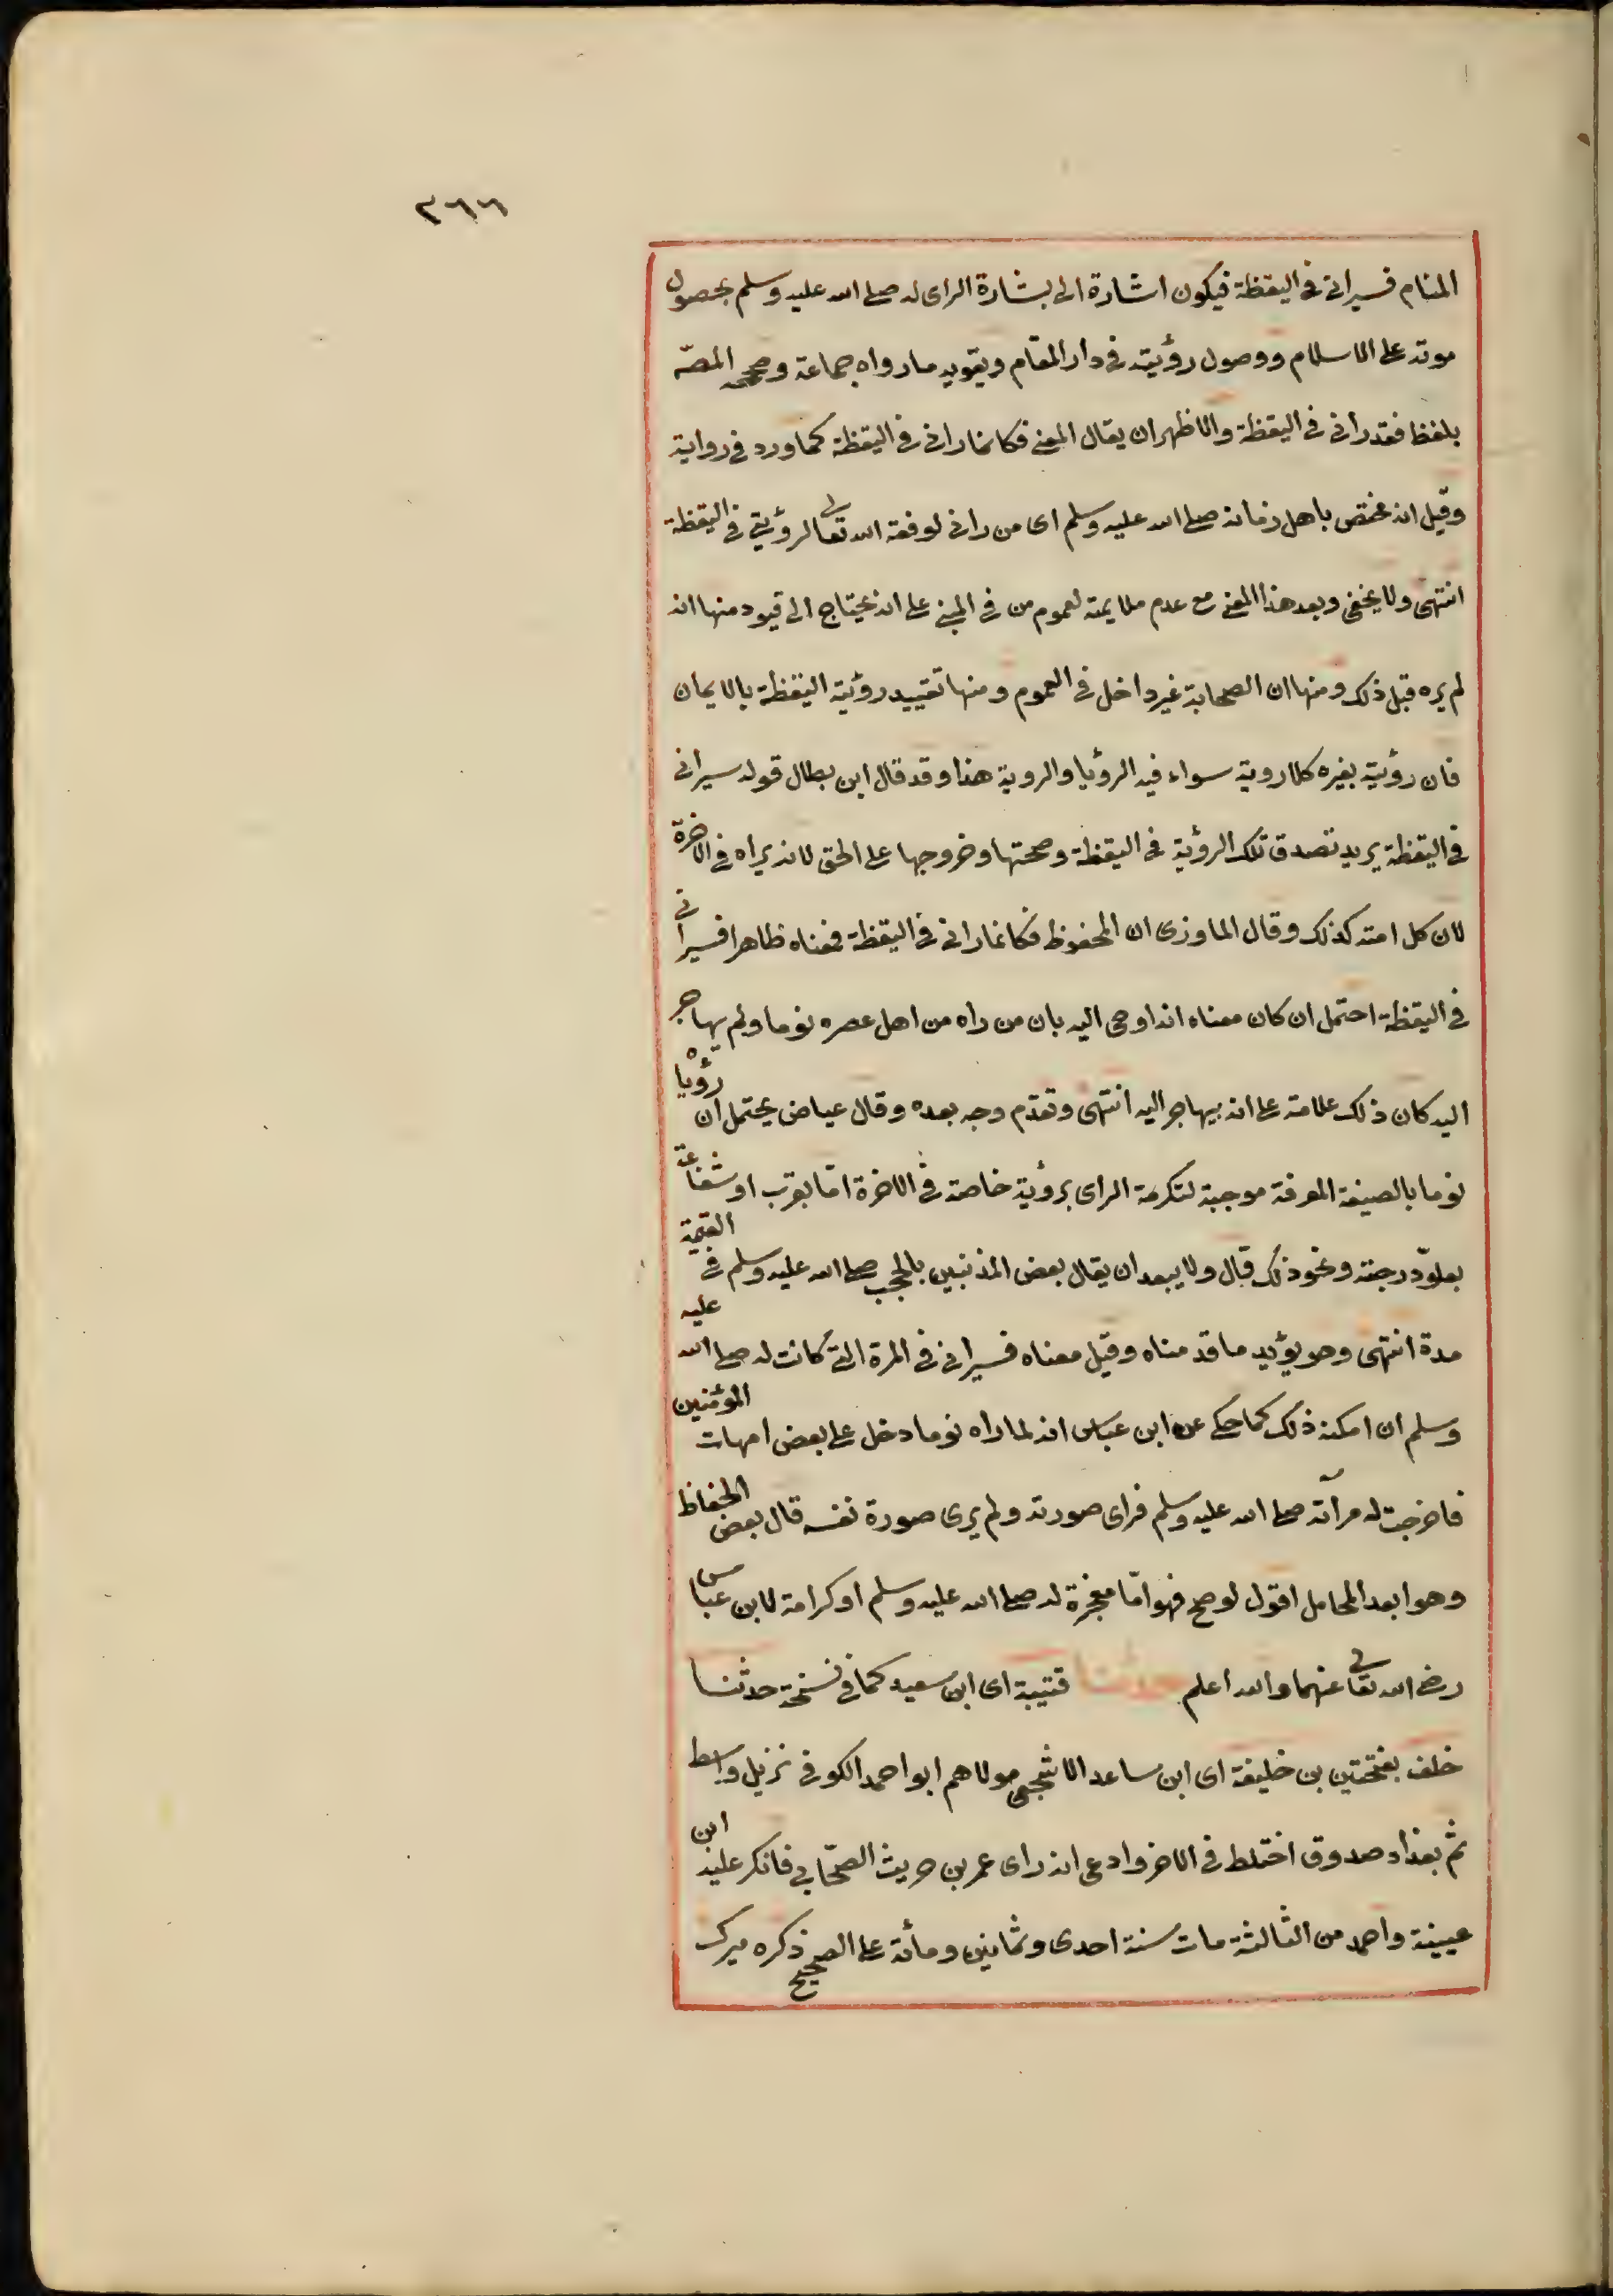 ٣٦٦
المنام فسيراني في اليقظة فيكون اشارة الى بشارة الراى له صلى الله عليه وسلم بحصول
موته على الاسلام ووصول رؤيته في دار المقام ويقويه ما رواه جماعة وصححه المصّ
بلفظ فقد رانى في اليقظة والاظهر ان يقال المعنى فكانما رانى في اليقظة كما ورد في رواية
وقيل انه مختص باهل زمانه صلى الله عليه وسلم اى من رانى لوفقه الله تعالى لرؤيتى في اليقظة
انتهى ولا يخفى وبعد هذا المعنى مع عدم ملايمة لعموم من في المبنى على انه يحتاج الى قيود منها انه
لم يره قبل ذلك ومنها ان الصحابة غير داخل في العموم ومنها تقييد رؤية اليقظة بالايمان
فان رؤيته بغيره كلا روية سواء فيه الرؤيا والروية هذا وقد قال ابن بطال قوله سيرانى
في اليقظة يريد تصدق تلك الرؤية في اليقظة وصحتها وخروجها على الحق لانه يراه في الاخرة
لان كل امته كذلك وقال الماوزى ان المحفوظ فكانما رانى في اليقظة فمعناه ظاهر افسيرانى
في اليقظة احتمل ان كان معناه انه اوحى اليه بان من راه من اهل عصره نوما ولم يهاجر
اليه كان ذلك علامة على انه بيهاجر اليه انتهى وتقدم وجه بعده وقال عياض يحتمل ان رؤياه
نوما بالصيغة المعرفة موجبة لتكرمة الراى برؤية خاصة في الاخرة اما بقرب او شفاعة
بعلوّ درجته ونحو ذلك قال ولا يبعد ان يقال بعض المذنبين بالحجب صلى الله عليه وسلم في القيمة
مدة انتهى وهو يؤيد ما قدمناه وقيل معناه فسيرانى في المرة التى كانت له صلى الله عليه
وسلم ان امكنه ذلك كما حكى عن ابن عباس انه لما راه نوما دخل على بعض امهات المؤمنين
فاخرجت له مرآته صلى الله عليه وسلم فراى صورته ولم يرى صورة نفسه قال بعض الحفاظ
وهو ابعد المحامل اقول لو صح فهو امّا معجزة له صلى الله عليه وسلم او كرامة لابن عباس
رضى الله تعالى عنهما والله اعلم حدثنا قتيبة اى ابن سعيد كما في نسخة حدثنا
خلف بفتحتين بن خليفة اى ابن ساعد الاشجعى مولاهم ابو احمد الكوفى نزيل واسط
ثم بغداد صدوق اختلط في الاخر وادعى انه راى عمر بن حريث الصحابى فانكر عليه ابن
عيينة واحمد من الثالثة مات سنة احدى وثمانين ومأئة على الصحيح ذكره ميرك